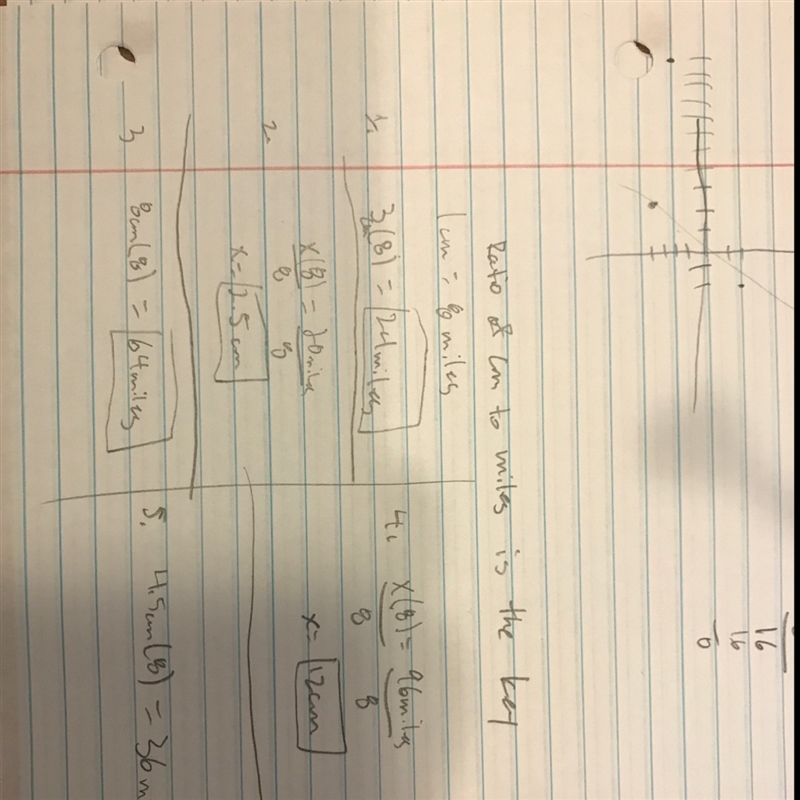 16
16
0
Ratio of cm to miles is the key
1cm = 8 miles
1.
3cm(8) = 24miles
2.
x(8) = 20miles
8 8
x= 2.5cm
3
8cm(8) = 64miles
4.
x(8) = 96miles
8 8
x= 12cm
5. 4.5cm(8) = 36m